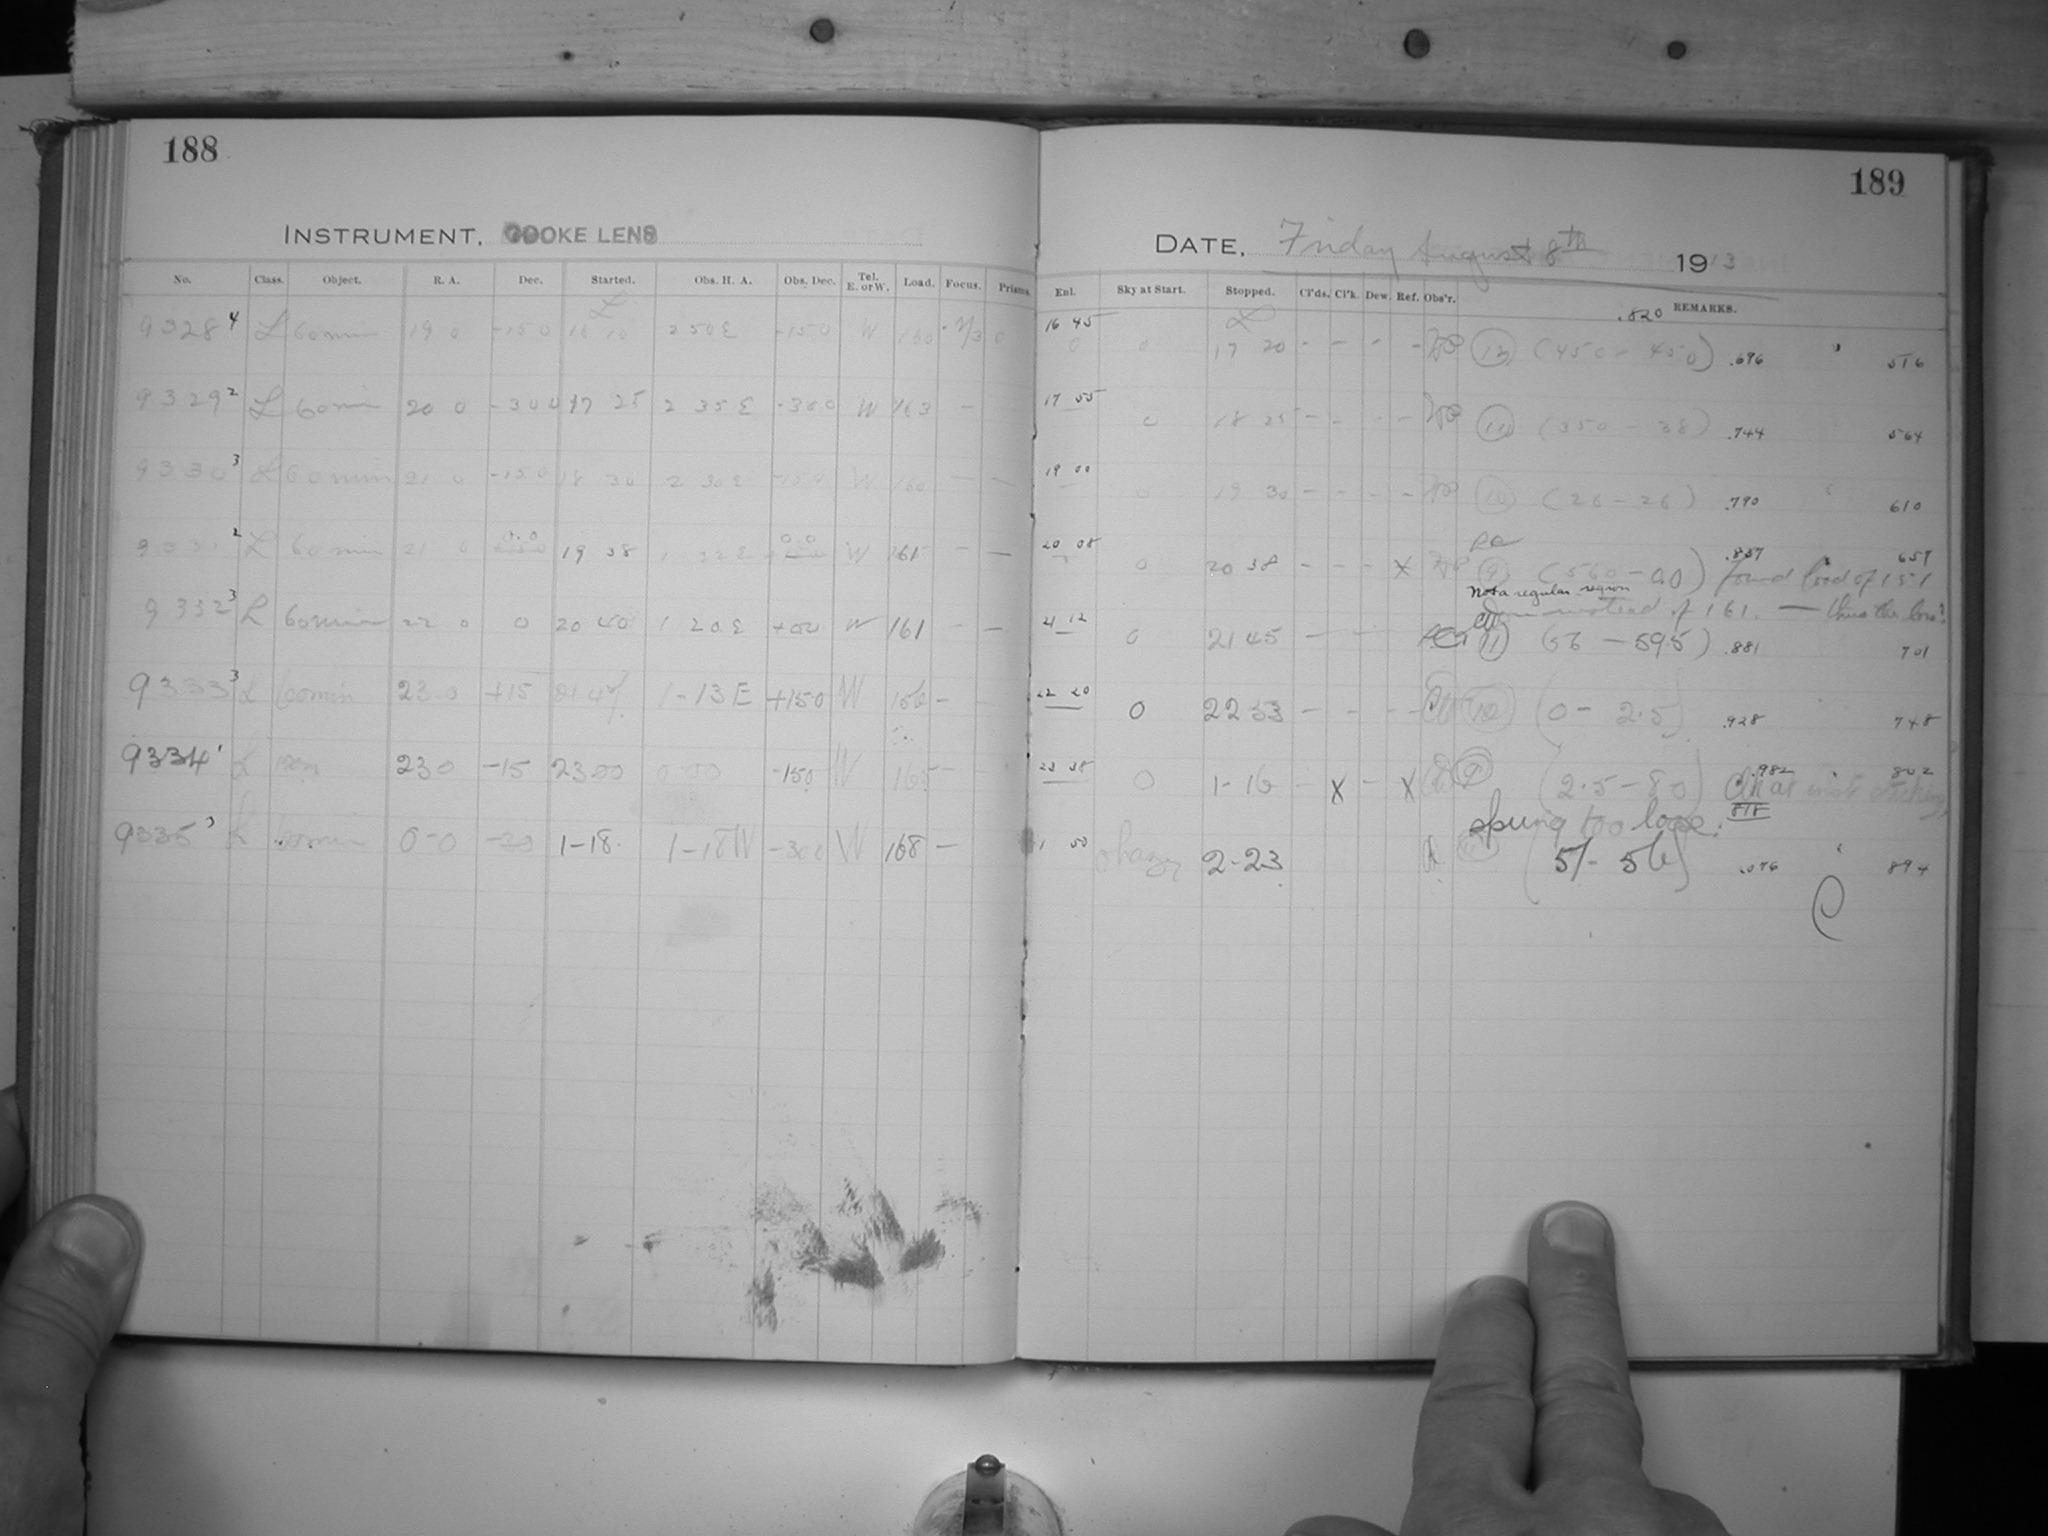 188
INSTRUMENT, COOKE LENS
No. Class. Object. R. A. Dec. Started. Obs. H. A. Obs. Dec. Tel. E. or W. Load. Focus. Prisms.
9328 4 L 60 min 19 0 -15 0 16 10 2 50 E -15 0 W 160
9329 2 L 60 min 20 0 -30 0 17 25 2 35 E -30 0 W 163 -
9330 3 L 60 min 21 0 -15 0 18 30 2 30 E -15 0 W 160 - -
2 L 60 min 21 0 0.0 19 38 1 32 E 0.0 W 161 - -
9332 3 L 60 min 22 0 0 20 40 1 20 E +00 W 161 - -
9333 3 L 60 min 23 0 +15 21 47 1-13 E +15 0 W -
9334 1 L 23 0 -15 23 00 0 00 -15 0 W 165 -
9335 3 L 60 min 0-0 -30 1-18 1-18 W -30 0 W 168 -
189
DATE, Friday August 8th 1913
Enl. Sky at Start. Stopped. Cl'ds. Cl'k. Dew. Ref. Obs'r. REMARKS.
.820
16 45 0 17 20 - - - - (13) (450 - 450) .696 516
17 55 0 18 25 - - - - (11) (350 - 38) .744 564
19 00 0 19 30 - - - - (10) (26 - 26) .790 610
20 08 0 20 38 - - - X (9) (560 - 00) .837 657
found load of 151
Not a regular region
instead of 161. — thus the loss?
21 12 0 21 45 - - (11) (56 - 595) .881 701
22 20 0 22 53 - - - - (10) (0 - 2.5) .928 748
23 38 0 1-16 - X - X (9) (2.5 - 80) .982 802
Clk at
878
spring too loose.
1 50 0 hazy 2-23 (51 - 56) .076 894